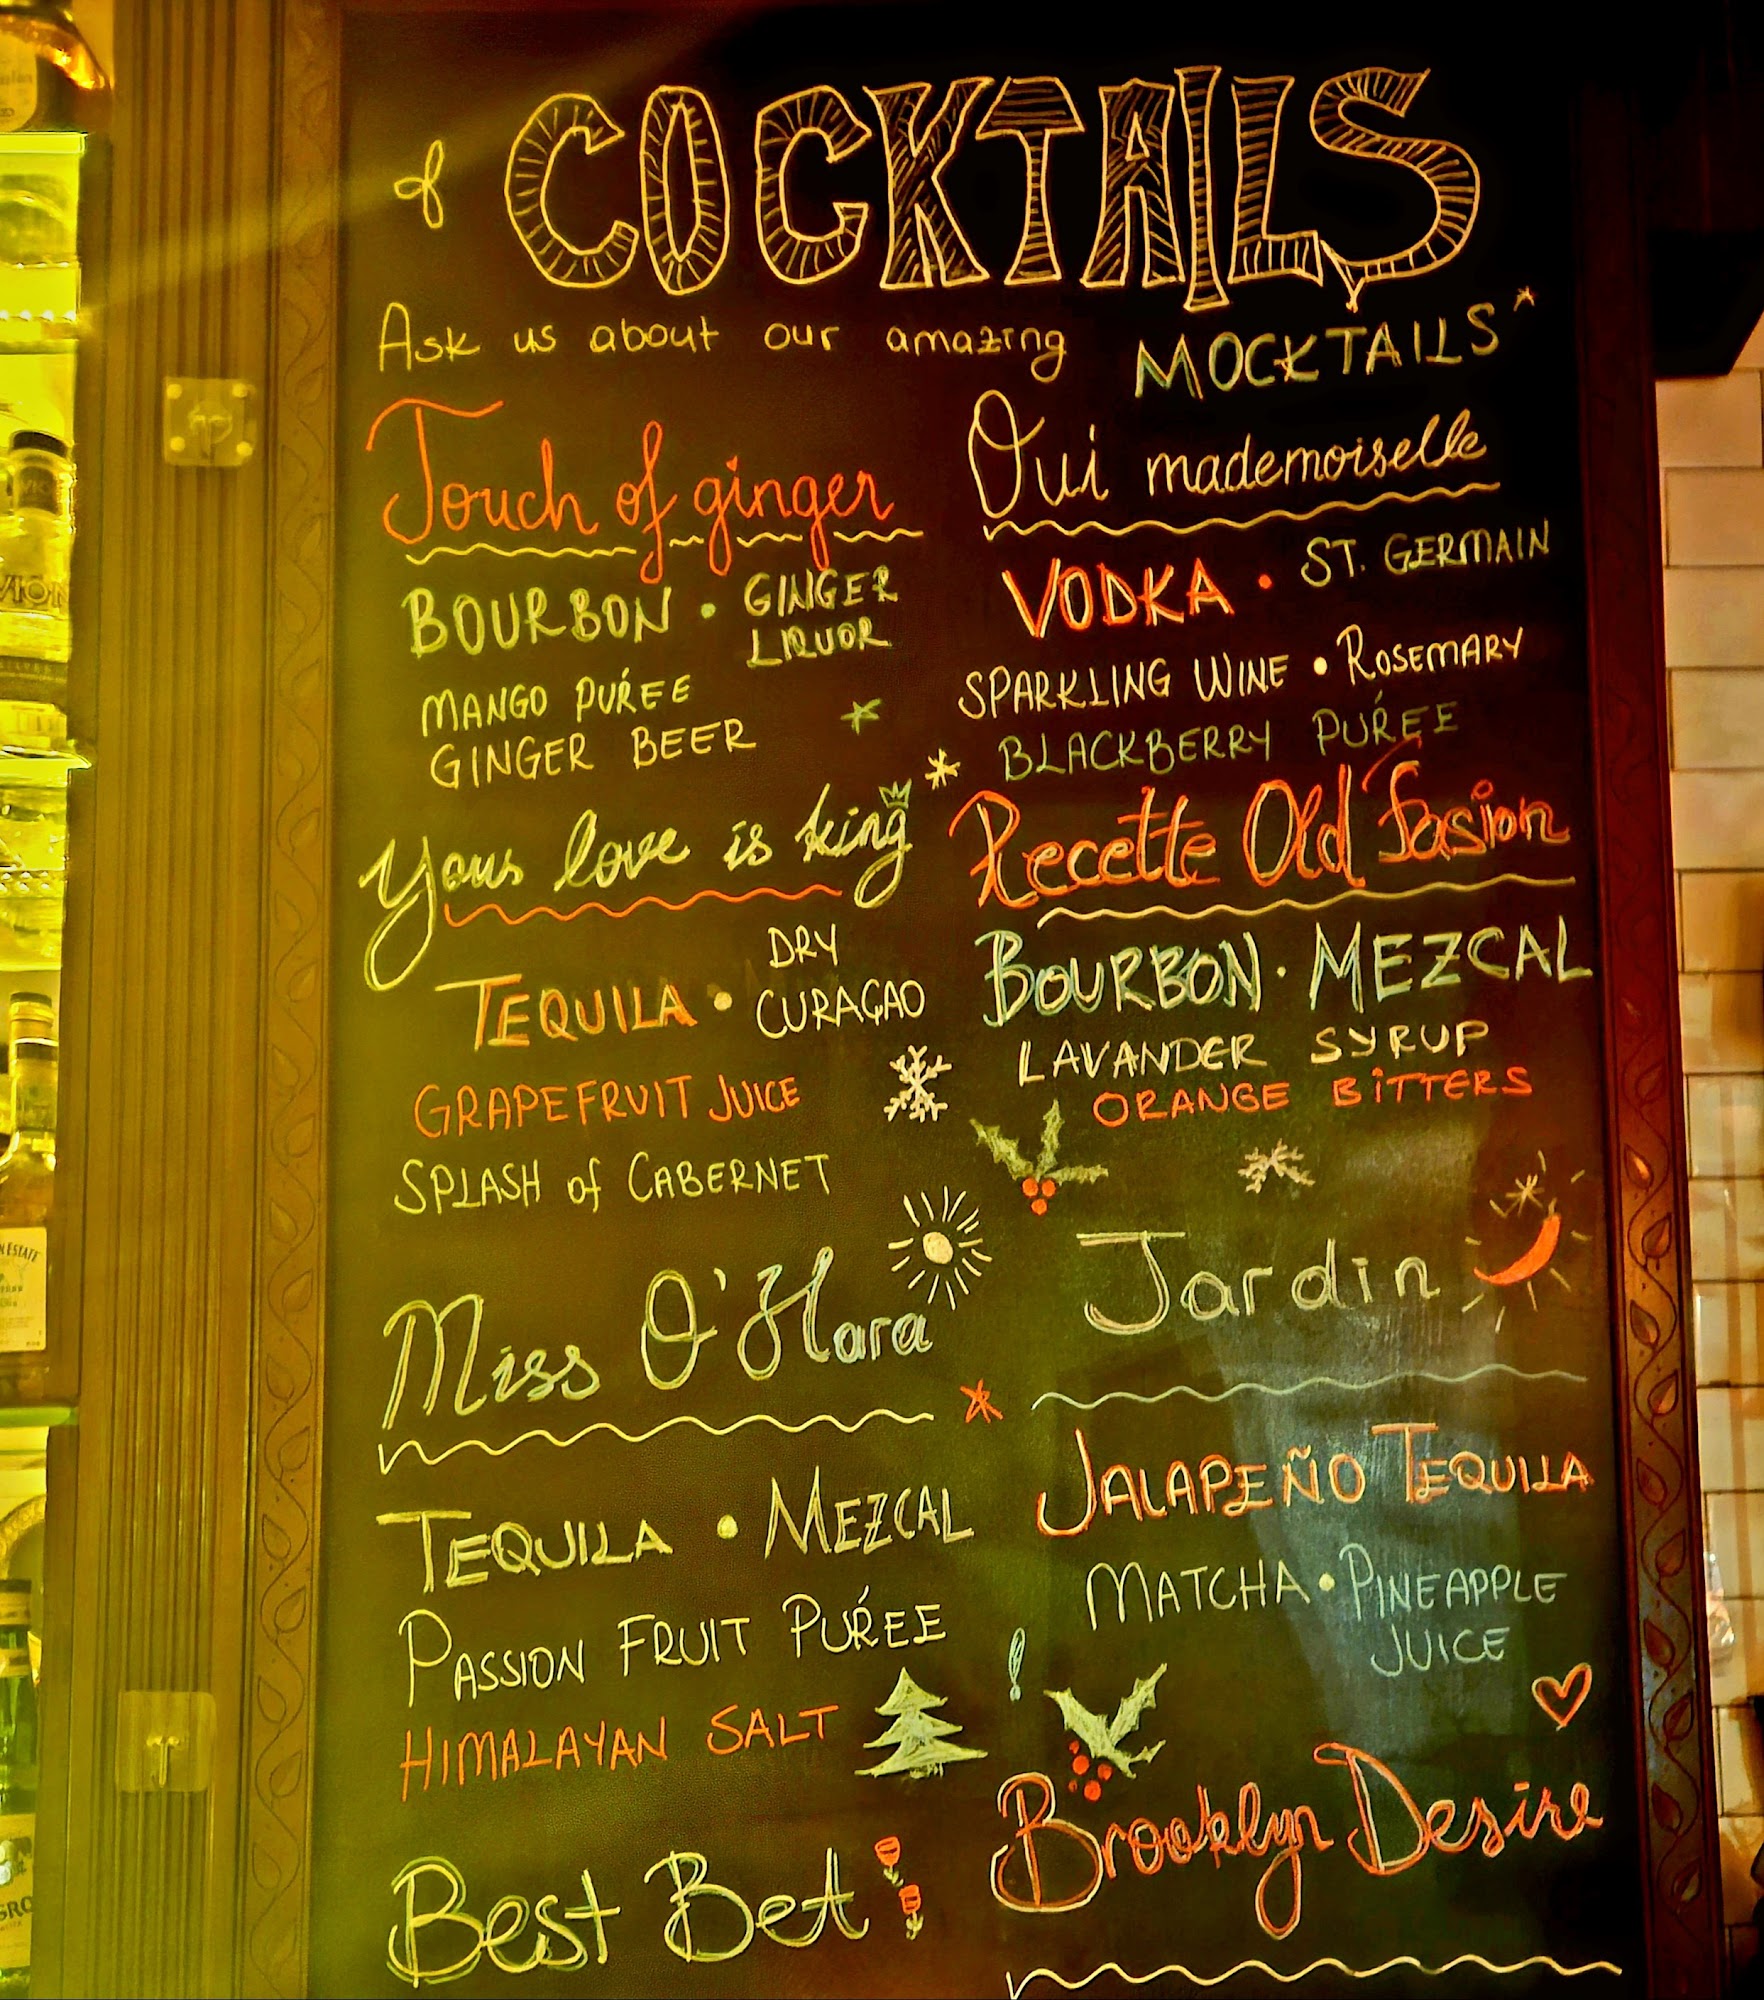 COCKTAILS
Ask us about our amazing MOCKTAILS*
Touch of ginger
BOURBON • GINGER
LIQUOR
MANGO PUŔEE
GINGER BEER
Your love is king
TEQUILA • DRY
CURAÇAO
GRAPEFRUIT JUICE
SPLASH of CABERNET
Miss O'Hara
TEQUILA • MEZCAL
PASSION FRUIT PUŔEE
HIMALAYAN SALT
Best Bet
Oui mademoiselle
VODKA • ST. GERMAIN
SPARKLING WINE • ROSEMARY
BLACKBERRY PUŔEE
Recette Old Fasion
BOURBON • MEZCAL
LAVANDER SYRUP
ORANGE BITTERS
Jardin
JALAPEÑO TEQUILA
MATCHA • PINEAPPLE
JUICE
Brooklyn Desire